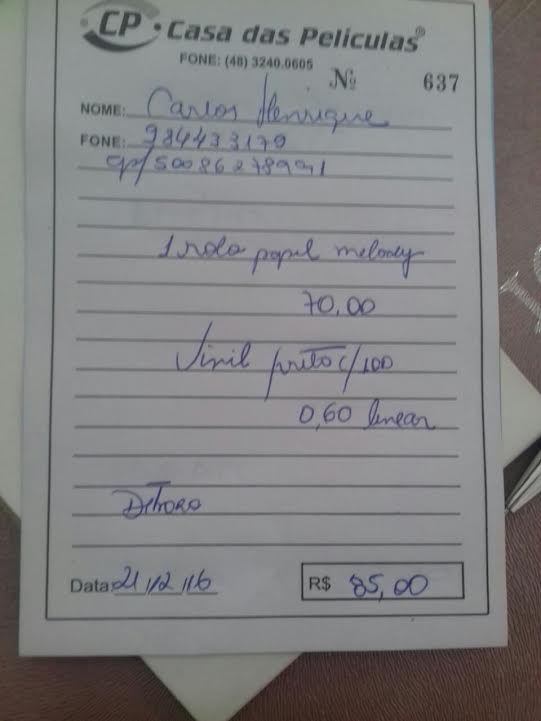 CP • Casa das Películas®
FONE: (48) 3240.0605
Nº 637
NOME: Carlos Henrique
FONE: 984433179
cpf 50086278991
1 rolo papel meloney
70,00
Vinil preto c/100
0,60 linear
Data: 21/12/16 R$ 85,00